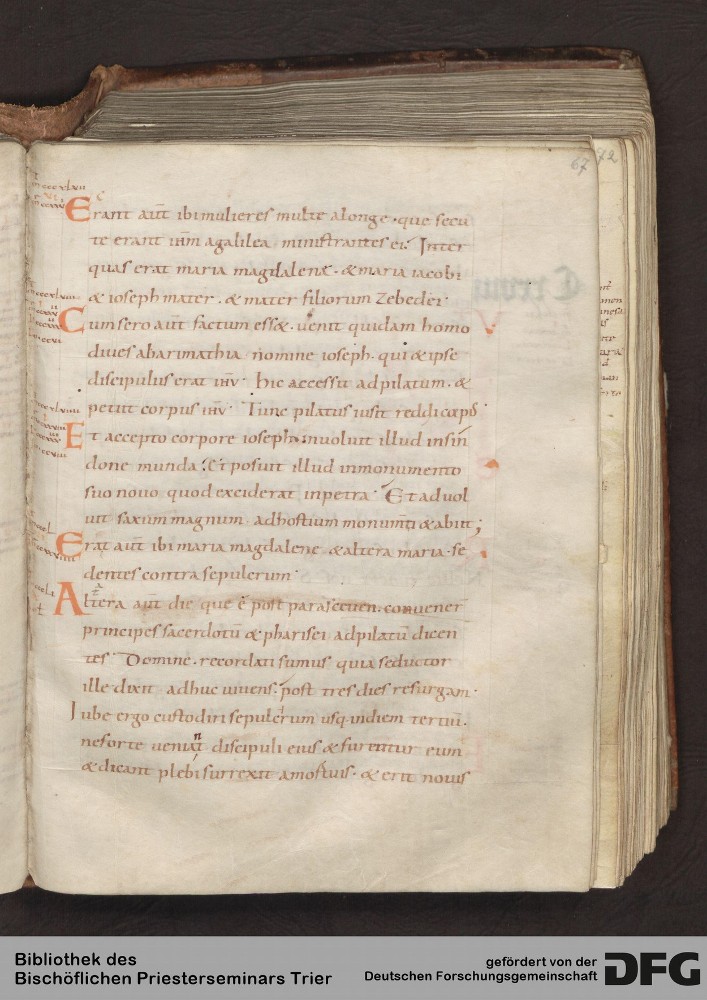 67
72
Erant aut̄ ibi mulieres multe alonge · que secu
te erant ihm̄ agalilea ministrantes ei · Inter
quas erat maria magdalene · & maria iacobi
& ioseph mater · & mater filiorum zebedei ·
Cum sero aut̄ factum esset · uenit quidam homo
diues abarimathia nomine ioseph · qui & ipse
discipulus erat ihv · hic accessit ad pilatum · &
petiit corpus ihv · Tunc pilatus iusit reddi corpꝰ
Et accepto corpore ioseph · inuoluit illud insin
done munda · Et posuit illud inmonumento
suo nouo quod exciderat inpetra · Et aduol
uit saxum magnum · adhostium monumti & abiit ;
Erat aut̄ ibi maria magdalene · & altera maria · se
dentes contra sepulcrum ·
Altera aut̄ die que ē post parasceuen · conuener
principes sacerdotū & pharisei adpilatū dicen
tes · Domine · recordati sumus quia seductor
ille dixit adhuc uiuens · post tres dies resurgam ·
Iube ergo custodiri sepulcrum usq; indiem tertiū ·
neforte ueniant discipuli eius & furentur eum
& dicant plebi surrexit amortuis · & erit nouis
Bibliothek des
Bischöflichen Priesterseminars Trier
gefördert von der
Deutschen Forschungsgemeinschaft
DFG